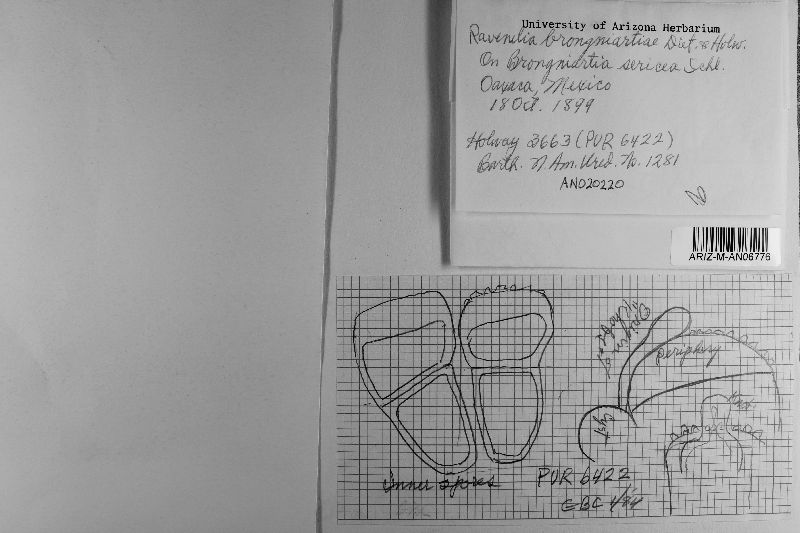 University of Arizona Herbarium
Ravenelia brongniartiae Diet. & Holw.
On Brongniartia sericea Schl.
Oaxaca, Mexico
18 Oct. 1899
Holway 3663 (PUR 6422)
Barth. N. Am. Ured. No. 1281
AN020220
ARIZ-M-AN06776
Origin of
periphery
cyst
inner spores
PUR 6422
GBC 4/84